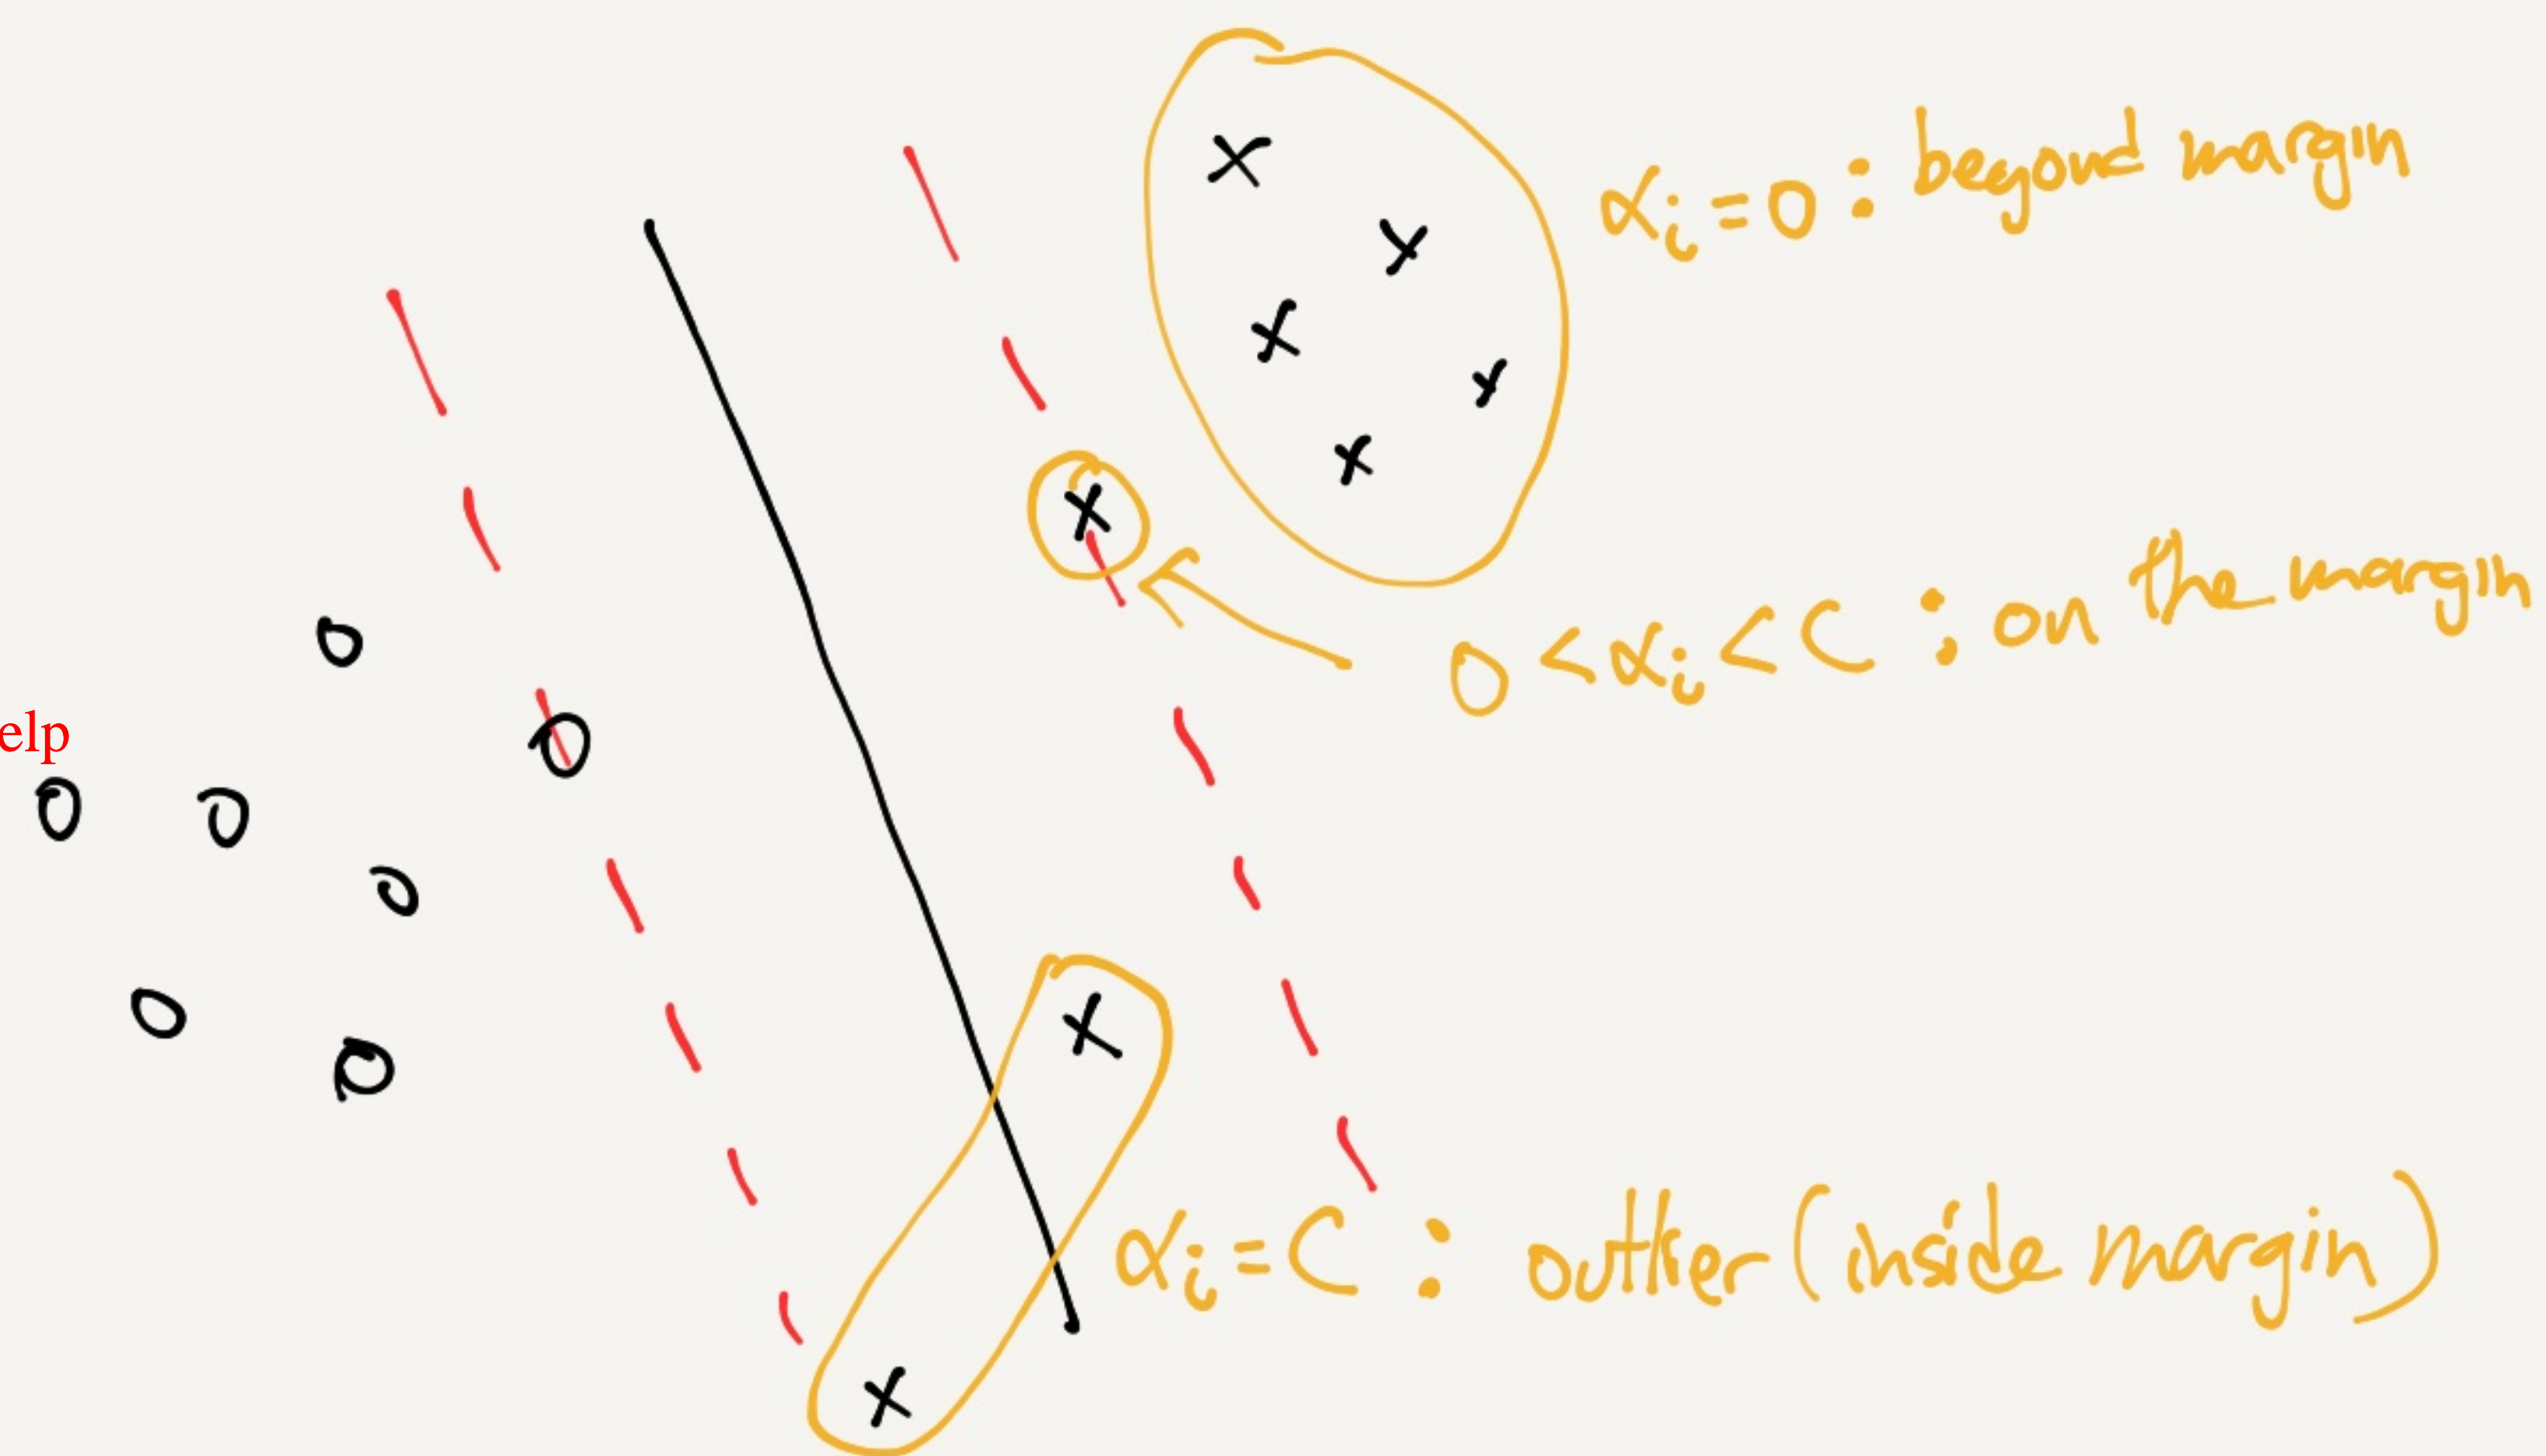 αᵢ=0 : beyond margin
0<αᵢ<C : on the margin
elp
αᵢ=C : outlier (inside margin)